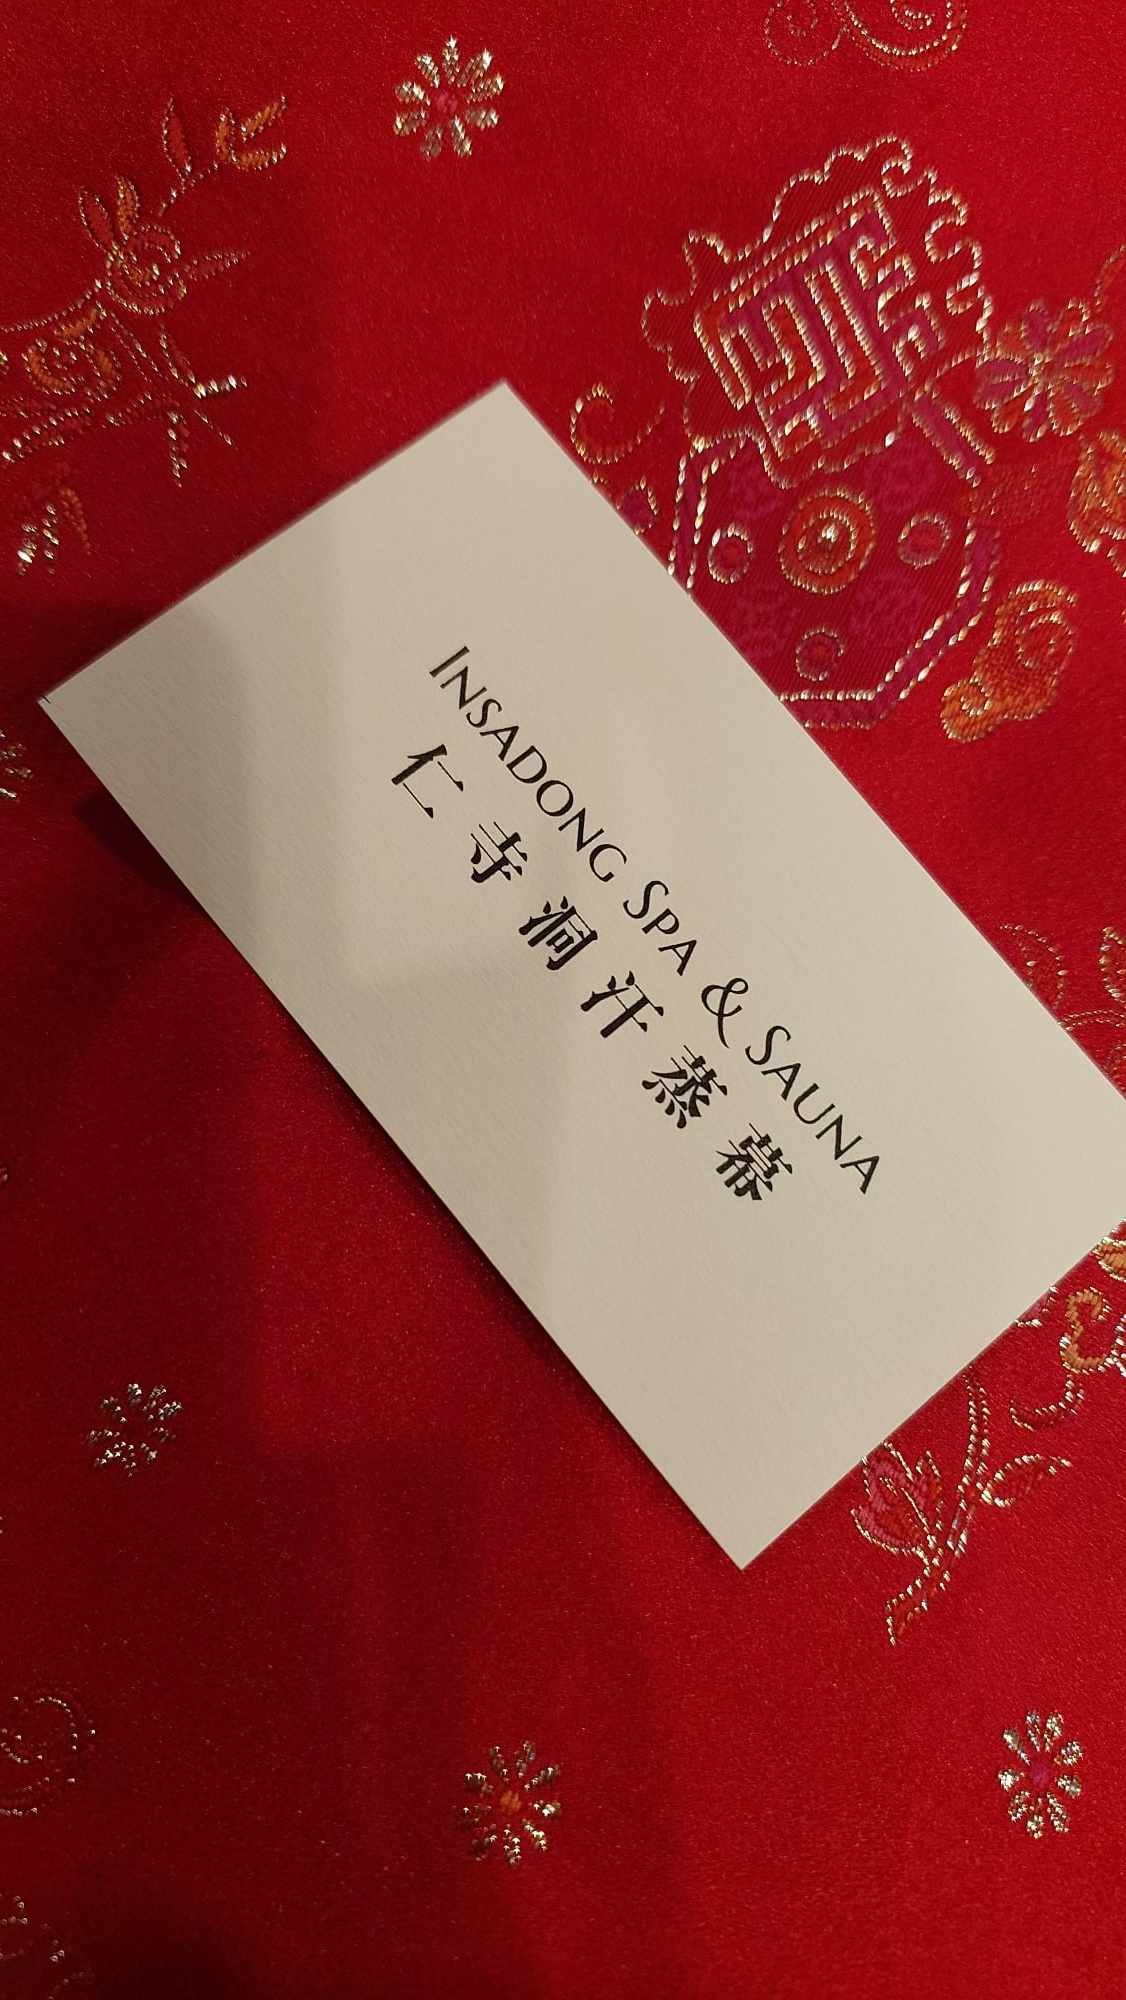 INSADONG SPA & SAUNA
仁寺洞汗蒸幕